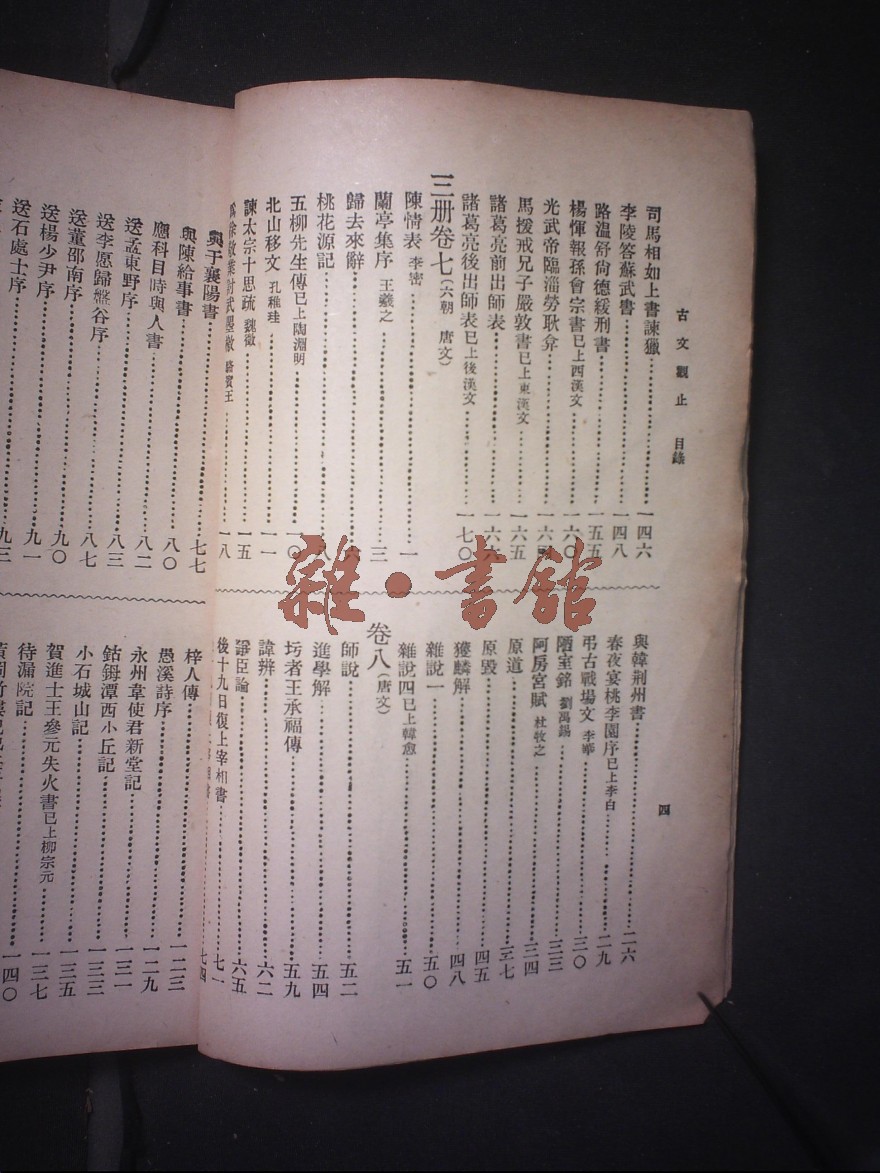 古文觀止 目錄
四
司馬相如上書諫獵⋯⋯一四六
李陵答蘇武書⋯⋯一四八
路溫舒尙德緩刑書⋯⋯一五五
楊惲報孫會宗書已上西漢文⋯⋯一六〇
光武帝臨淄勞耿弇⋯⋯一六四
馬援戒兄子嚴敦書已上東漢文⋯⋯一六五
諸葛亮前出師表⋯⋯一六六
諸葛亮後出師表已上後漢文⋯⋯一七〇
三册卷七(六朝 唐文)
陳情表 李密⋯⋯一
蘭亭集序 王羲之⋯⋯三
歸去來辭⋯⋯六
桃花源記⋯⋯八
五柳先生傳已上陶淵明⋯⋯一〇
北山移文 孔稚珪⋯⋯一一
諫太宗十思疏 魏徵⋯⋯一五
爲徐敬業討武曌檄 駱賓王⋯⋯一八
與韓荆州書⋯⋯二六
春夜宴桃李園序已上李白⋯⋯二九
弔古戰場文 李華⋯⋯三〇
陋室銘 劉禹錫⋯⋯三三
阿房宮賦 杜牧之⋯⋯三四
原道⋯⋯三七
原毀⋯⋯四五
獲麟解⋯⋯四八
雜說一⋯⋯五〇
雜說四已上韓愈⋯⋯五一
卷八(唐文)
師說⋯⋯五二
進學解⋯⋯五四
圬者王承福傳⋯⋯五九
諱辨⋯⋯六二
諍臣論⋯⋯六五
後十九日復上宰相書⋯⋯七一
書⋯⋯七四
與于襄陽書⋯⋯七七
與陳給事書⋯⋯八〇
應科目時與人書⋯⋯八二
送孟東野序⋯⋯八三
送李愿歸盤谷序⋯⋯八七
送董邵南序⋯⋯九〇
送楊少尹序⋯⋯九一
送石處士序⋯⋯九三
梓人傳⋯⋯一二三
愚溪詩序⋯⋯一二九
永州韋使君新堂記⋯⋯一三一
鈷鉧潭西小丘記⋯⋯一三三
小石城山記⋯⋯一三五
賀進士王參元失火書已上柳宗元⋯⋯一三七
待漏院記⋯⋯一四〇
雜·書館